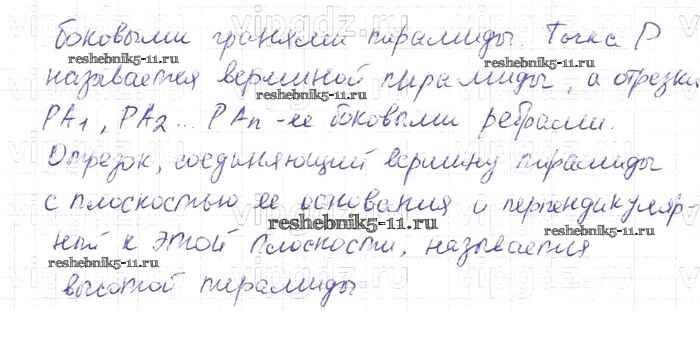 боковыми гранями пирамиды. Точка P
называется вершиной пирамиды, а отрезки
PA1, PA2 ... PAn - ее боковыми ребрами.
Отрезок, соединяющий вершину пирамиды
с плоскостью ее основания и перпендикуляр-
ный к этой плоскости, называется
высотой пирамиды
reshebnik5-11.ru
reshebnik5-11.ru
reshebnik5-11.ru
reshebnik5-11.ru
reshebnik5-11.ru
reshebnik5-11.ru
reshebnik5-11.ru